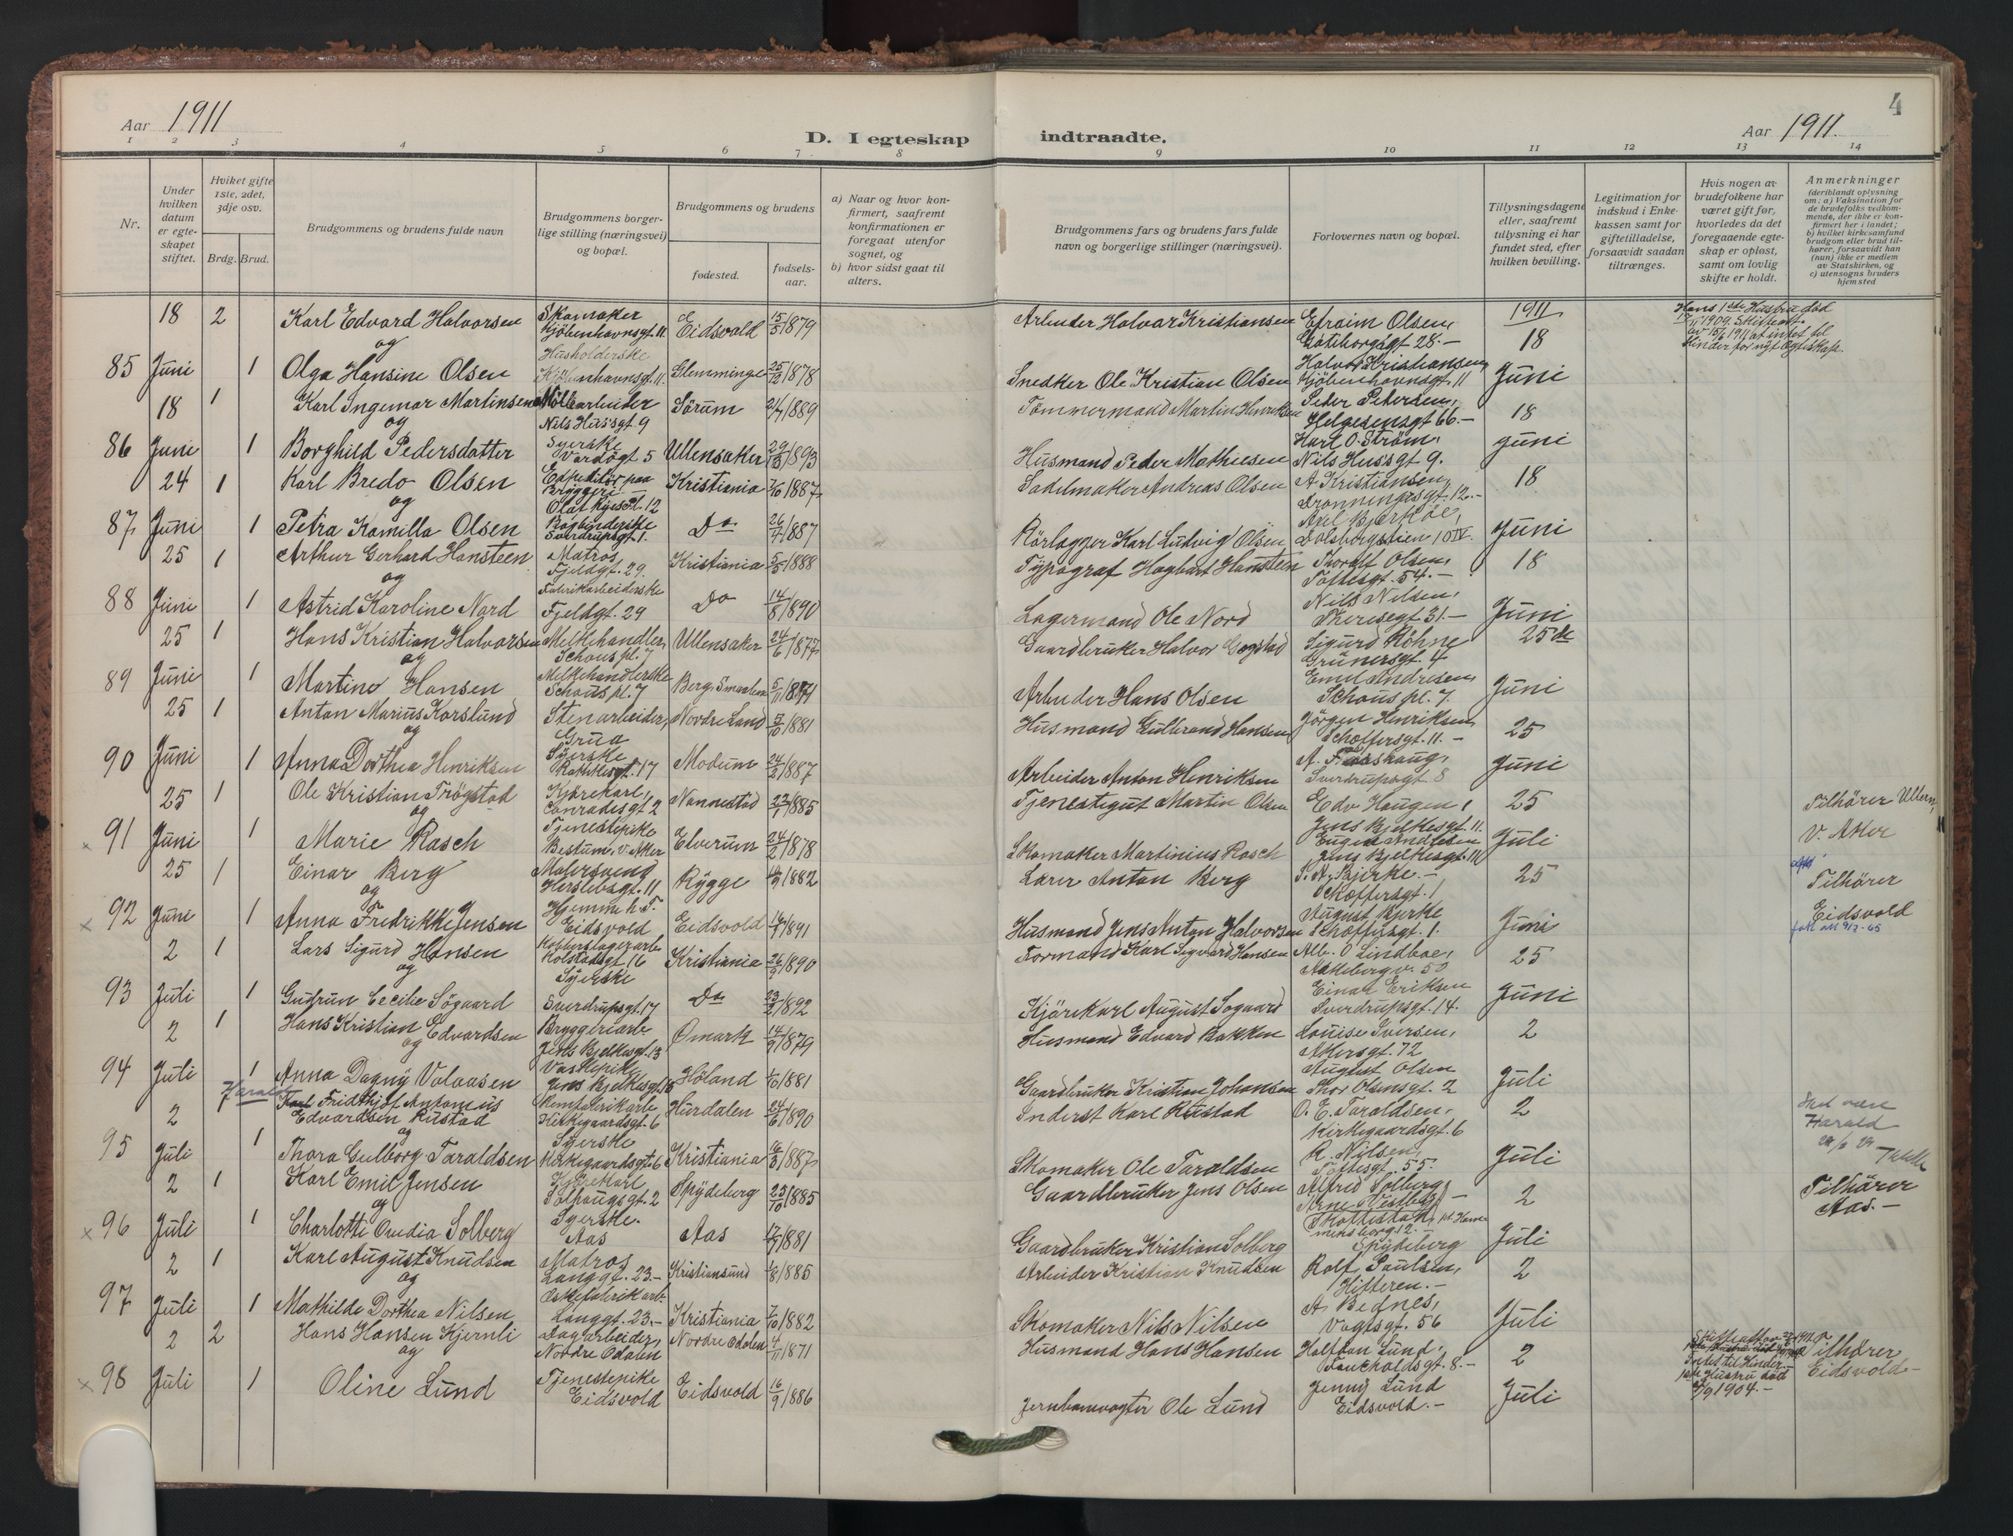 Aar 1911
D. I egteskap indtraadte.
Aar 1911.
4
1 2 3 4 5 6 7 8 9 10 11 12 13 14
Nr.
Under hvilken datum er egteskapet stiftet.
Hvilket gifte 1ste, 2det, 3dje osv.
Brdg. Brud.
Brudgommens og brudens fulde navn
Brudgommens borgerlige stilling (næringsvei) og bopæl.
Brudgommens og brudens
fødested.
fødselsaar.
a) Naar og hvor konfirmert, saafremt konfirmationen er foregaat utenfor sognet, og
b) hvor sidst gaat til alters.
Brudgommens fars og brudens fars fulde navn og borgerlige stillinger (næringsvei).
Forlovernes navn og bopæl.
Tillysningsdagene eller, saafremt tillysning ei har fundet sted, efter hvilken bevilling.
Legitimation for indskud i Enkekassen samt for giftetilladelse, forsaavidt saadan tiltrænges.
Hvis nogen av brudefolkene har været gift før, hvorledes da det foregaaende egteskap er opløst, samt om lovlig skifte er holdt.
Anmerkninger
(deriblandt oplysning om: a) Vaksination for de brudefolks vedkommende, der ikke er konfirmert her i landet; b) hvilket kirkesamfund brudgom eller brud tilhører, forsaavidt han (hun) ikke er medlem av Statskirken, og c) utensogns bruders hjemsted
85 18 Juni 2 Karl Edvard Halvorsen Skomaker Kjöbenhavnsgt. 11. Eidsvold 15/5 1879 Arbeider Halvar Kristiansen Efraim Olsen, Göteborggt 28.- 1911 18 Hans 1ste Hustru död
og
1 Olga Hansine Olsen Husholderske Kjöbenhavnsgt. 11. Glemminge 25/12 1878 Snedker Ole Kristian Olsen Halvor Kristiansen, Kjöbenhavnsgt. 11 Juni
86 18 Juni 1 Karl Ingemar Martinsen Möllearbeider Nils Hussgt 9 Sörum 1889 Tömmermand Martin Henriksen Peder Petersen, Helgesensgt 66.- 18
og
1 Borghild Pedersdatter Syerske Vardögt 5 Ullensaker 1893 Husmand Peder Mathiesen Karl O. Ström, Nils Hussgt 9. Juni
87 24 Juni 1 Karl Bredo Olsen Expeditör paa Bryggeri Olaf Ryes Pl. 12 Kristiania 1887 Sadelmaker Andreas Olsen A Kristiansen, Dronningensgt. 12.- 18
og
1 Petra Kamilla Olsen Bogbinderske Sverdrupsgt 1. Do 26/4 1887 Rörlægger Karl Ludvig Olsen Juni
88 25 Juni 1 Arthur Gerhard Hansteen Matros, Fjeldgt. 29. Kristiania 1888 Typograf Hagbart Hanstein Thoralf Olsen, Toftesgt. 54.- 18
og
1 Astrid Karoline Nord Fabrikarbeiderske Fjeldgt. 29 Do 14/8 1890 Lagermand Ole Nord Nils Nilsen, Theresegt 31.- Juni
89 25 Juni 1 Hans Kristian Halvorsen Melkehandler, Schous pl. 7 Ullensaker 24/6 1877 Gaardbruker Halvor Gogstad Sigurd Röhne Grünersgt. 4 25de
og
1 Martine Hansen Melkehandlerske Schous pl. 7 Berg, Smaalene 5/11 1874 Arbeider Hans Olsen Emil Andresen, Schous pl. 7. Juni
90 25 Juni 1 Anton Marius Korslund Stenarbeider, Grua Nordre Land 5/10 1881 Husmand Gulbrand Hansen Jörgen Henriksen, Schæffersgt. 11.- 25
og
1 Anna Dorthea Henriksen Syerske Rathkesgt. 17 Modum 1887 Arbeider Anton Henriksen Sverdrupsgt 8 Juni
x 91 25 Juni 1 Ole Kristian Trögstad Kjörekarl, Conradesgt 2 Nannestad 1885 Tjenestegut Martin Olsen Edv Haugen, Jens Bjelkesgt. 11. 25 Tilhörer Ullern, V. Aker
og
1 Marie Rasch Tjenestepike Bestum, V. Aker Elverum 24/2 1878 Skomaker Martinius Rasch Jens Bjelkesgt. 11 Juli
x 92 25 Juni 1 Einar Berg Malersvend Herslebsgt. 11 Rygge 1882 Lærer Anton Berg S. A. Bjerke.-, Schæffersgt. 1 25 Tilhörer Eidsvold
og
1 Anna Fredrikke Jensen Hjemme h. F. Eidsvold Eidsvold 1891 Husmand Jens Anton Halvorsen August Bjerke Schæffersgt. 1. Juni
93 2 Juli 1 Lars Sigurd Hansen Kobberslagerarb. Kolstadgt 16 Kristiania 26/9 1890 Formand Karl Sigvard Hansen Alb. O Lindboe, 25
og
1 Gudrun Cecilie Sögaard Syerske Sverdrupsgt. 17 Do 23/2 1892 Kjörekarl August Sogaard Einar Eriksen Sverdrupsgt. 14. Juni
94 2 Juli 1 Hans Kristian Edvardsen Bryggeriarb Jens Bjelkesgt. 13 Ömark 14/9 1879 Husmand Edvard Bakken Louise Iversen, Akersgt. 72 2
og
1 Anna Dagny Volaasen Vaskepike Jens Bjelkesgt. Höland 1881 Gaardbruker Kristian Johansen August Olsen Thor Olsensgt. 2 Juli
95 2 Juli 1 Harald Fridthjof Antonius Edvardsen Rustad Kirkegaardsgt. 6 Hurdalen 24/6 1890 Inderst Karl Rustad O. E. Taraldsen, Kirkegaardsgt. 6 2 Skal være Harald
og
1 Thora Gulborg Taraldsen Syerske Kirkegaardsgt 6 Kristiania 16/3 1887 Skomaker Ole Taraldsen R. Nilsen, Toftesgt. 55. Juli
x 96 2 Juli 1 Karl Emil Jensen Kjörekarl Solhaugsgt. 2 Spydeberg 23/10 1885 Gaardbruker Jens Olsen Alfred Solberg 2 Tilhörer Aas.-
og
1 Charlotte Ovedia Solberg Syerske. Aas Aas 1881 Gaardbruker Kristian Solberg Spydeberg Juli
97 2 Juli 1 Karl August Knudsen Matros Langgt. 23.- Kristiansund 1885 Arbeider Kristian Knudsen Rolf Paulsen, Hitteren.- 2
og
1 Mathilde Dorthea Nilsen Eskefabrikarb. Langgt. 23.- Kristiania 1882 Skomaker Nils Nilsen Vogtsgt. 56 Juli
x 98 2 Juli 2 Hans Hansen Kjernli Dagarbeider, Nordre Odalen Nordre Odalen 4/11 1871 Husmand Hans Hansen Halfdan Lund, Fauchaldsgt. 8.- 2 Tilhörer Eidsvold
og
1 Oline Lund Tjenestepike Eidsvold Eidsvold 16/9 1886 Jernbanevogter Ole Lund Jenny Lund Eidsvold.- Juli